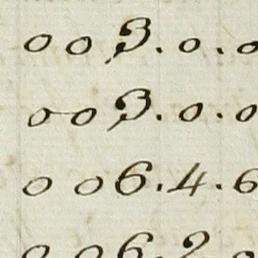 0 0 3. 0. 0
0 0 3. 0. 0
0 0 6. 4. 6
0 0 6. 2. 0